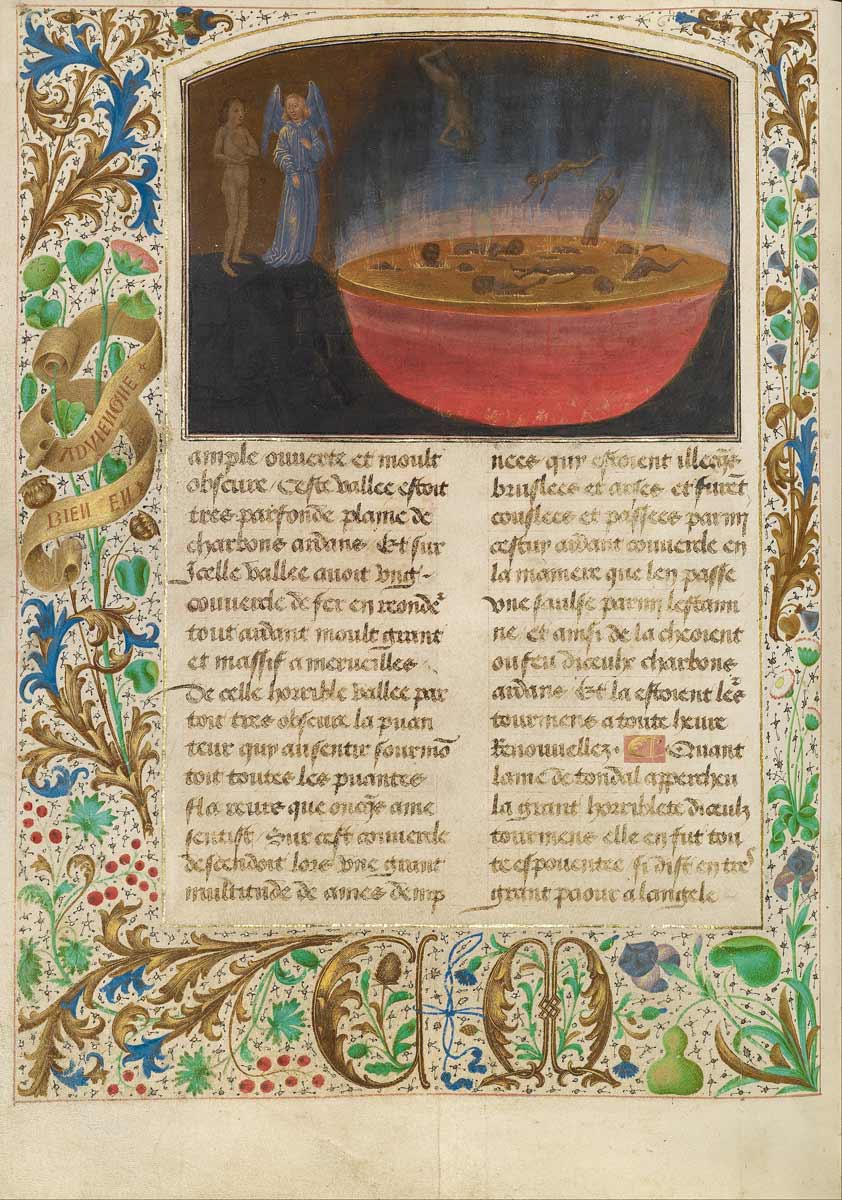 ADVIENGNE
BIEN EN
ample ouverte et moult
obscure / Ceste vallee estoit
tres parfonde plaine de
charbons ardans Et sur
Jcelle vallee auoit vng
couuercle de fer en ronde
tout ardant moult grant
et massif a merueilles
De celle horrible vallee par
toit tres obscure la puan
teur quy au sentir sourmo
toit toutes les puantes
flaireurs que oncqs ame
sentist / Sur cest couuercle
descendoit lors vne grant
multitude de ames demp
nees quy estoient illecqs
bruslees et arses et furet
coulees et passees parmy
cestuy ardant couuercle en
la maniere que len passe
vne saulse parmi lestami
ne et ainsi de la cheoient
ou feu diceulx charbons
ardans Et la estoient les
tourmens a toute heure
Renouuellez Quant
lame de tondal appercheu
la grant horriblete diceulz
tourmens elle en fut tou
te espouentee si dist en tre
grant paour a langele
C M